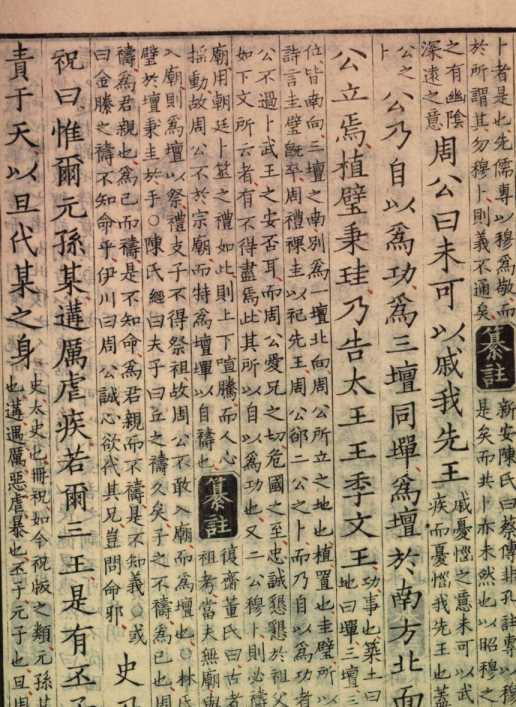 卜者是也先儒專以穆爲敬而
於所謂其勿穆卜則義不通矣
纂註
新安陳氏曰蔡傳非孔註專以穆
是矣而共卜亦未然也以昭穆之
之有幽陰
深遠之意
周公曰未可以戚我先王
戚憂惱之意未可以武
疾而憂惱我先王也蓋
公之
卜
公乃自以爲功爲三壇同墠爲壇於南方北面
公立焉植璧秉珪乃告太王王季文王
功事也築土曰
地曰墠三壇三
位皆南向三壇之南別爲一壇北向周公所立之地也植置也圭璧所
詩言圭璧旣卒周禮祼圭以祀先王周公卻二公之卜而乃自以爲功者
公不過卜武王之安否耳而周公愛兄之切危國之至忠誠懇懇於祖父
如下文所云者有不得盡焉此其所以自以爲功也又二公穆卜則必禱
廟用朝廷卜筮之禮如此則上下喧騰而人心
搖動故周公不於宗廟而特爲壇墠以自禱也
纂註
復齋董氏曰古者
祖考當夫無廟
入廟則爲壇以祭禮支子不得祭祖故周公不敢入廟而爲壇也○林氏
璧於壇秉圭於手○陳氏經曰夫子曰丘之禱久矣子之不禱爲已也周
禱爲君親也爲已而禱是不知命爲君親而不禱是不知義○或
曰金縢之禱不知命乎伊川曰周公誠心欲代其兄豈問命邪
史乃
祝曰惟爾元孫某遘厲虐疾若爾三王是有丕子
責于天以旦代某之身
史太史也冊祝如今祝版之類元孫某
也遘遇厲惡虐暴也丕子元子也旦周